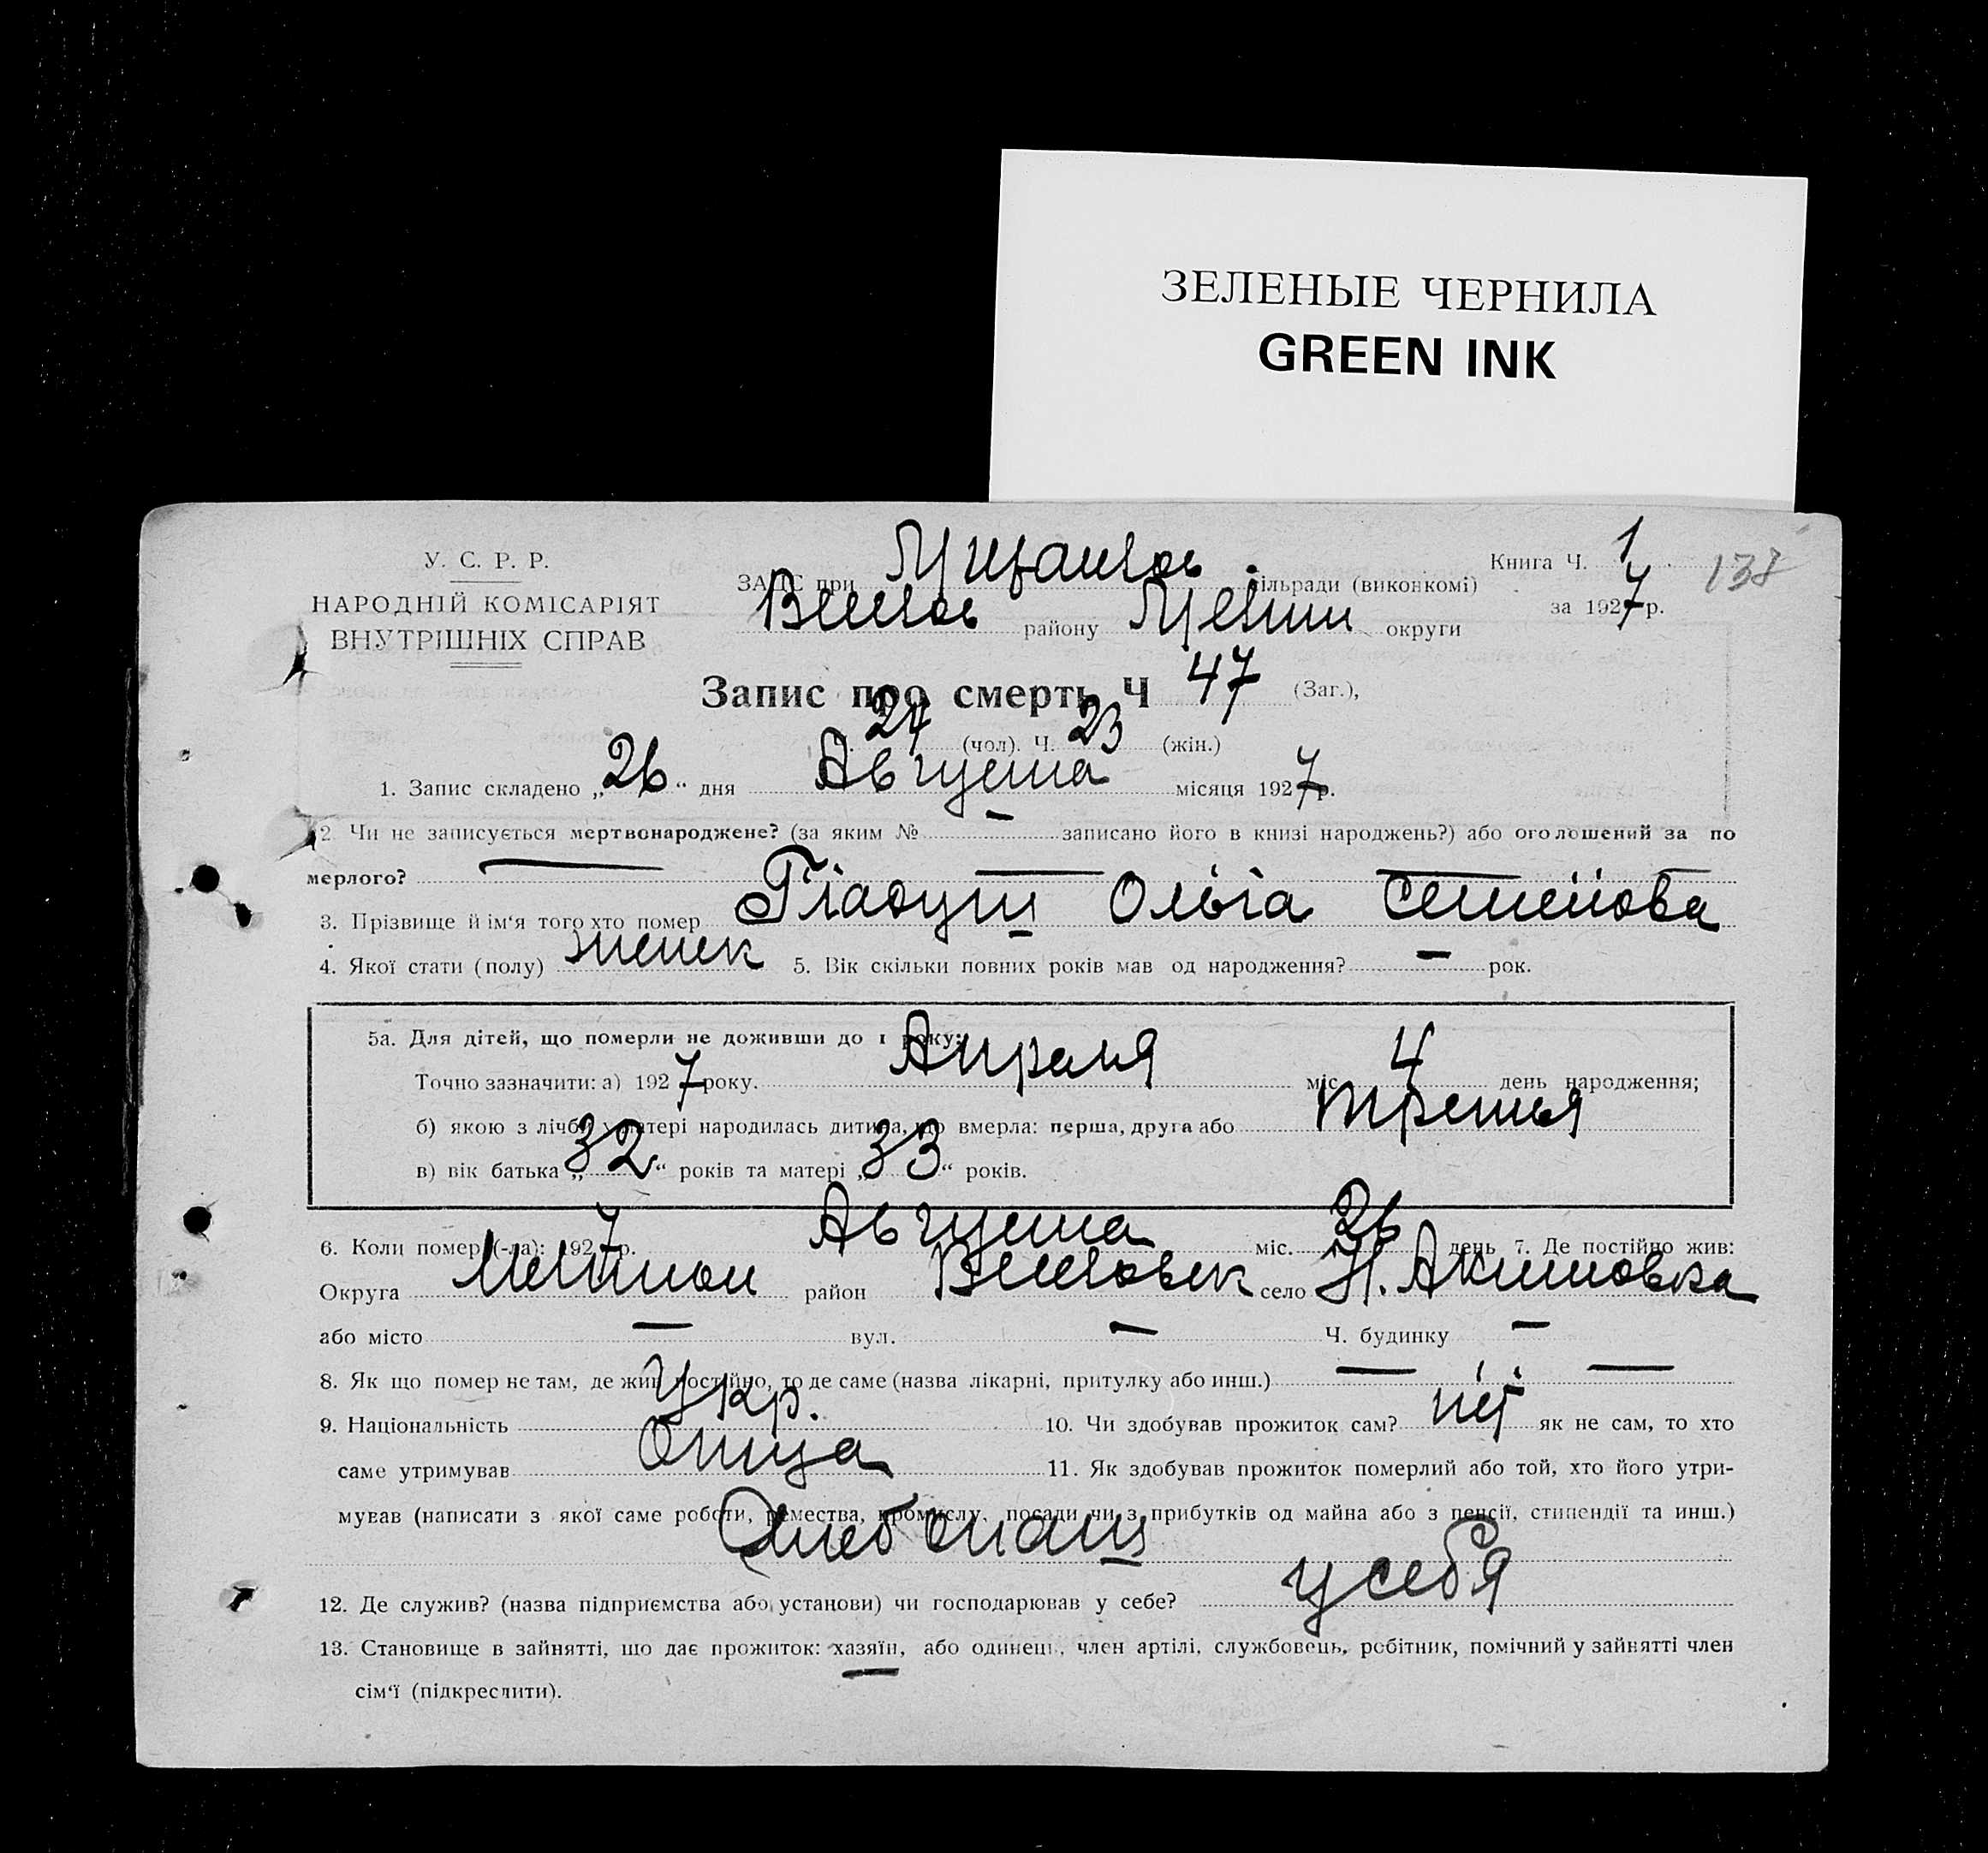 ЗЕЛЕНЫЕ ЧЕРНИЛА
GREEN INK
У. С. Р. Р.
НАРОДНІЙ КОМІСАРІЯТ
ВНУТРІШНІХ СПРАВ
ЗАПС при сільради (виконкомі)
району округи
Книга Ч. 1
за 1927 р.
138
Запис про смерть Ч 47 (Заг.),
24 (чол). Ч. 23 (жін.)
1. Запис складено „26“ дня Августа місяця 1927 р.
2. Чи не записується мертвонароджене? (за яким № — записано його в книзі народжень?) або оголошений за по
мерлого? —
3. Прізвище й ім‘я того хто помер Гладуш Ольга Семенова
4. Якої стати (полу) женск 5. Вік скільки повних років мав од народження? — рок.
5а. Для дітей, що померли не доживши до 1 року:
Точно зазначити: а) 1927 року. Апреля міс 4 день народження;
б) якою з лічби у матері народилась дитина, що вмерла: перша, друга або третья
в) вік батька „32“ років та матері „33“ років.
6. Коли помер (-ла): 1927 р. Августа міс. 26 день 7. Де постійно жив:
Округа район село Н. Акимовка
або місто — вул. — Ч. будинку —
8. Як що помер не там, де жив постійно, то де саме (назва лікарні, притулку або инш.) — —
9. Національність Укр. 10. Чи здобував прожиток сам? нет як не сам, то хто
саме утримував Отца 11. Як здобував прожиток померлий або той, хто його утри-
мував (написати з якої саме роботи, ремества, промислу, посади чи з прибутків од майна або з пенсії, стипендії та инш.)
Хлебопаш
12. Де служив? (назва підприємства або установи) чи господарював у себе? у себя
13. Становище в зайнятті, що дає прожиток: хазяїн, або одинець, член артілі, службовець, робітник, помічний у зайнятті член
сім‘ї (підкреслити).